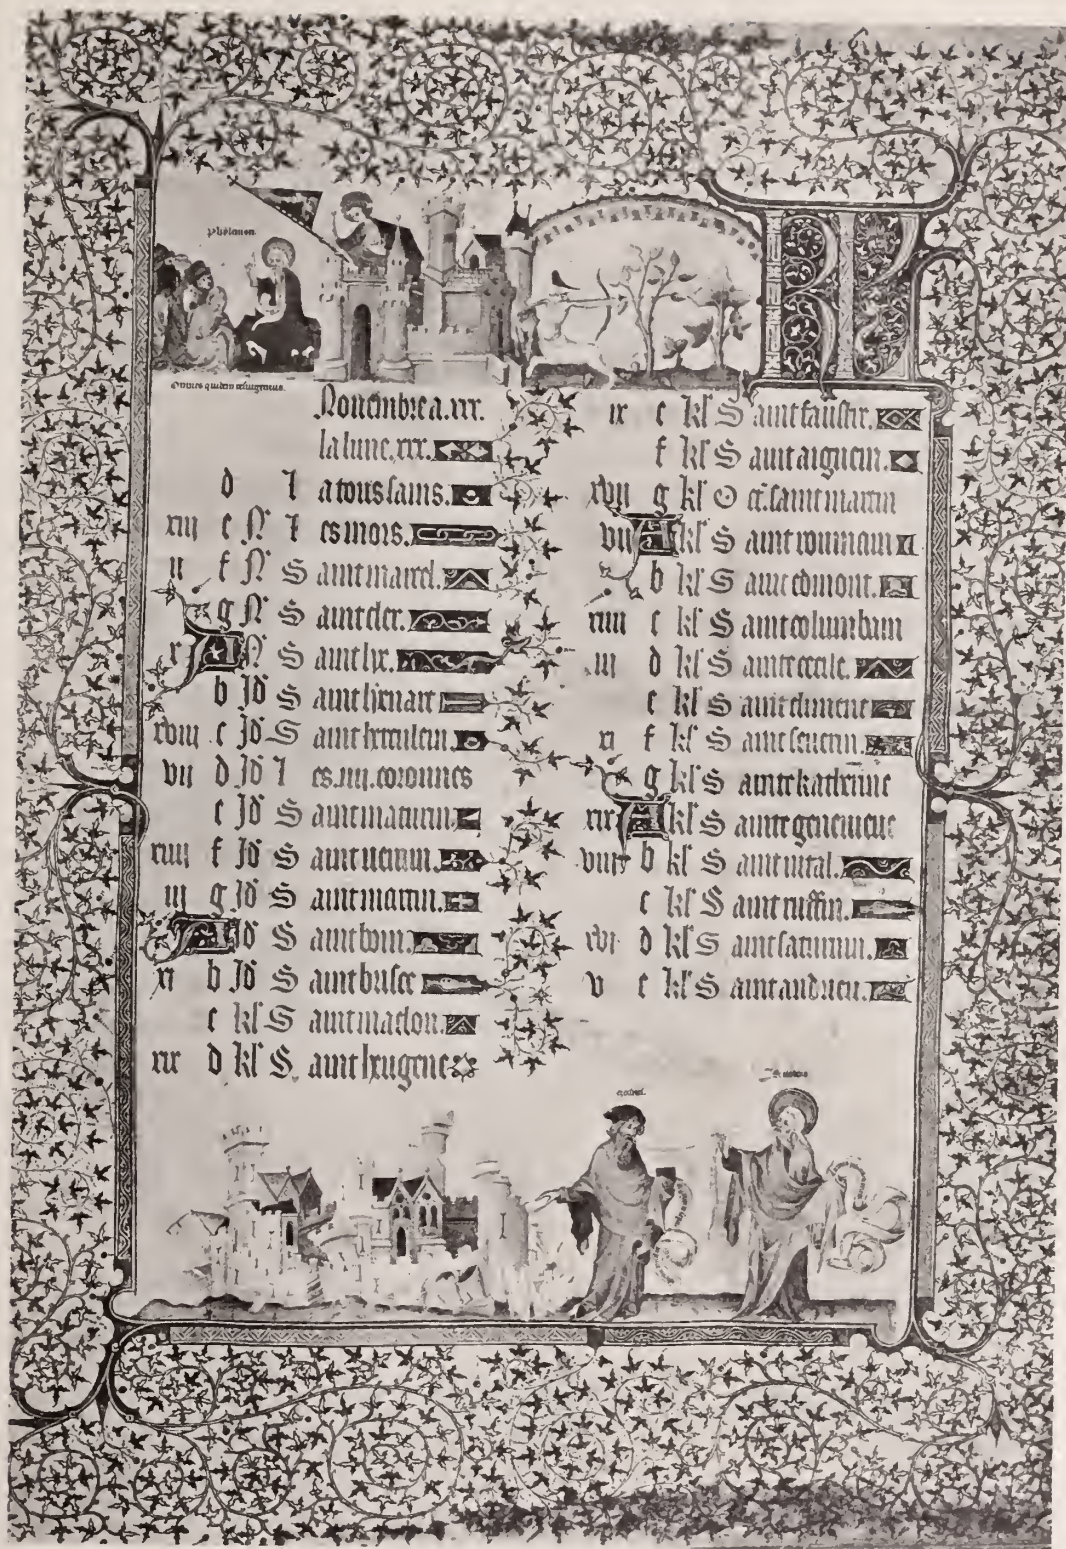 Phylimon.
Omnes quidem resurgemus.
KL
Nouembre a .xxx.
la lune .xxx.
d I a toussains.
xiii e N I es mors.
ii f N S aint marcel.
g N S aint cler.
x A N S aint lie.
b Id S aint lienart
xviii c Id S aint herculein.
vii d Id I es .iiii. coronnes
e Id S aint maturin.
xiiii f Id S aint
iii g Id S aint martin.
A Id S aint
xi b Id S aint
c kl S aint maclou.
xix d kl S aint eugene
ix e kl S aint
f kl S aint aignein.
xvii g kl O ct. saint martin
vii A kl S aint roumain
b kl S aint edmont.
xiiii c kl S aint columbam
iii d kl S ainte cecile.
e kl S aint climent
xi f kl S aint seuerin.
g kl S ainte katherine
xix A kl S ainte geneuieue
viii b kl S aint vital.
c kl S aint ruffin.
xvi d kl S aint saturnin.
v e kl S aint andrieu.